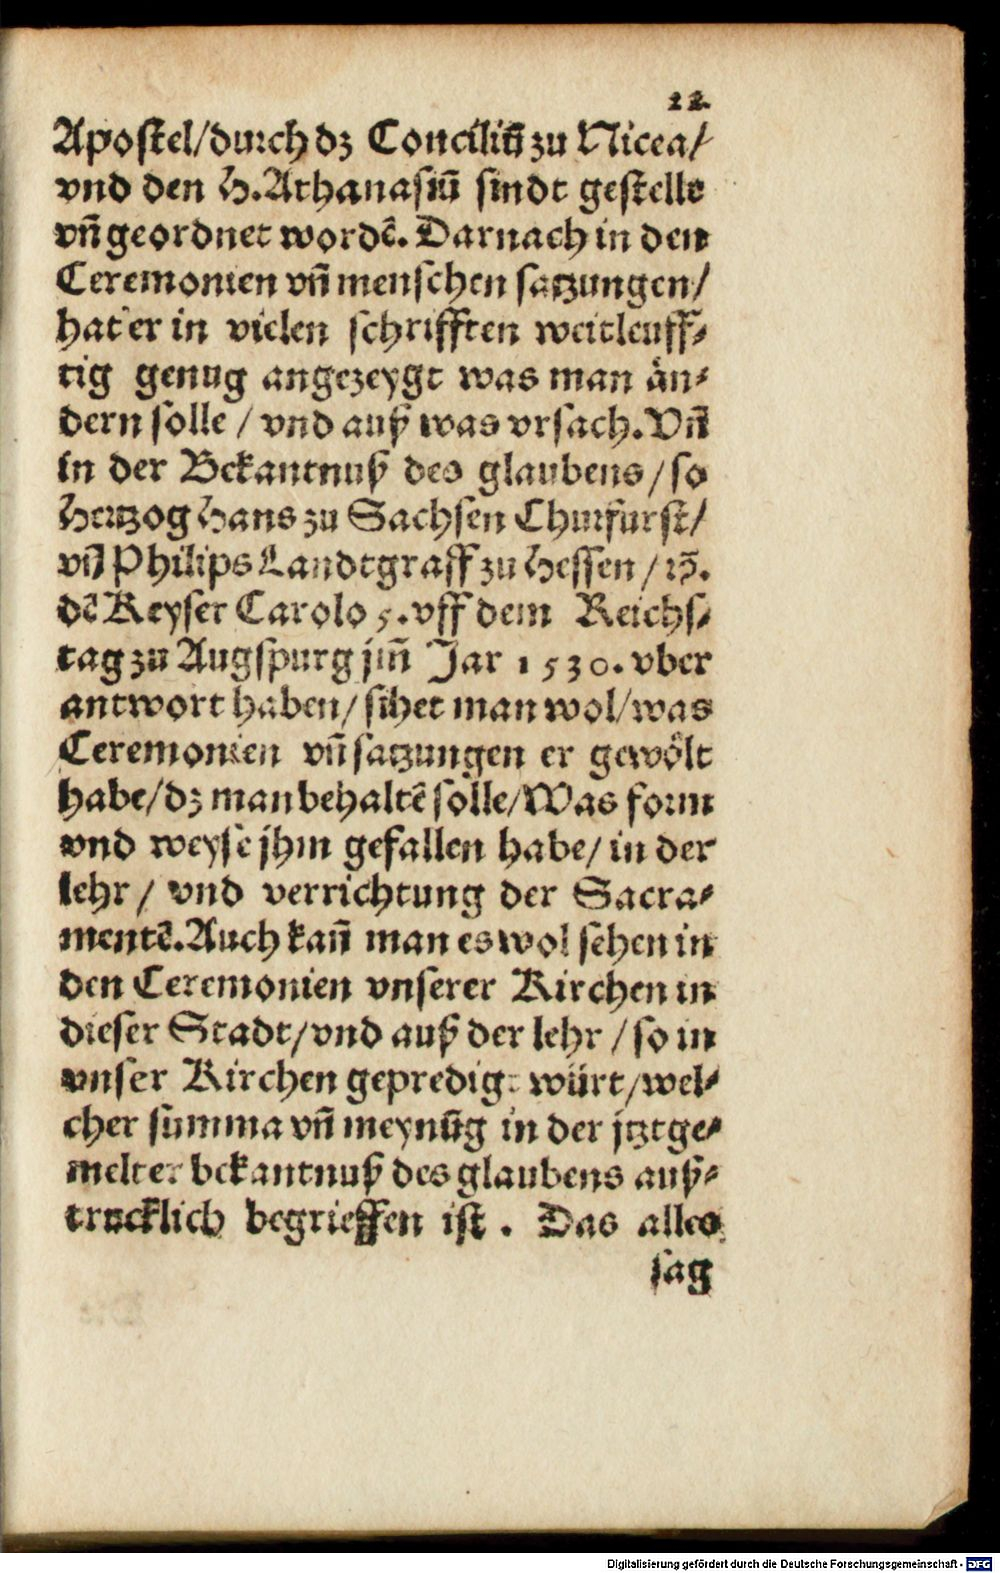 22.
Apostel/durch dz Conciliū zu Nicea/
vnd den H. Athanasiū sindt gestellt
vñ geordnet wordē. Darnach in den
Ceremonien vñ menschen satzungen/
hat er in vielen schrifften weitleuff⸗
tig genug angezeygt was man än⸗
dern solle / vnd auß was vrsach. Vñ
in der Bekantnuß des glaubens/so
Hertzog Hans zu Sachsen Churfurst/
vñ Philips Landtgraff zu Hessen / ꝛc̄.
dē Keyser Carolo 5. vff dem Reichs⸗
tag zu Augspurg jm̄ Jar 1530. vber
antwort haben/ sihet man wol/was
Ceremonien vñ satzungen er gewölt
habe/dz man behaltē sölle/Was form
vnd weyse jhm gefallen habe/ in der
lehr / vnd verrichtung der Sacra⸗
mentē. Auch kañ man es wol sehen in
den Ceremonien vnserer Kirchen in
dieser Stadt/vnd auß der lehr / so in
vnser Kirchen gepredigt würt/wel⸗
cher summa vñ meynūg in der jtztge⸗
melter bekantnuß des glaubens auß⸗
trucklich begrieffen ist . Das alles
sag
Digitalisierung gefördert durch die Deutsche Forschungsgemeinschaft - DFG